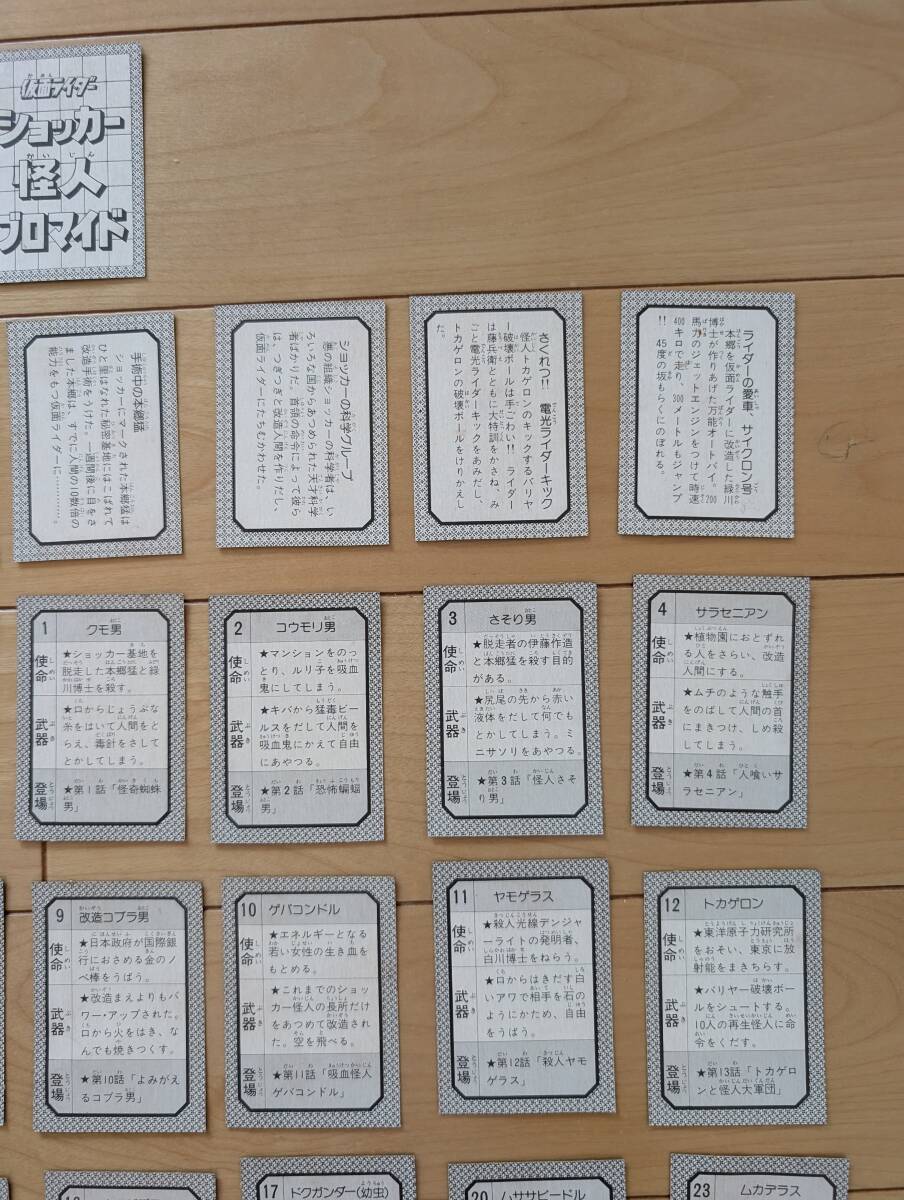 仮面ライダー
ショッカー
怪人
ブロマイド
手術中の本郷猛
ショッカーにマークされた本郷猛は
ひと里はなれた秘密基地にはこばれて
改造手術をうけた。一週間後に目をさ
ました本郷は、すでに人間の10数倍の
能力をもつ仮面ライダーに…………。
ショッカーの科学グループ
悪の組織ショッカーの科学者は、い
ろいろな国からあつめられた天才科学
者ばかりだ。首領の命令によって彼ら
は、つぎつぎと改造人間を作りだし、
仮面ライダーにたちむかわせた。
さくれつ!! 電光ライダーキック
怪人トカゲロンのキックするバリヤ
ー破壊ボールは手ごわい!! ライダー
は藤兵衛とともに大特訓をかさね、み
ごと電光ライダーキックをあみだし、
トカゲロンの破壊ボールをけりかえし
た。
ライダーの愛車、サイクロン号
本郷を仮面ライダーに改造した緑川
博士が作りあげた万能オートバイ。200
馬力のジェットエンジンをつけて時速
400キロで走り、300メートルもジャンプ
!! 45度の坂もらくにのぼれる。
1 クモ男
使命
★ショッカー基地を
脱走した本郷猛と緑
川博士を殺す。
武器
★口からじょうぶな
糸をはいて人間をと
らえ、毒針をさして
とかしてしまう。
登場
★第1話「怪奇蜘蛛
男」
2 コウモリ男
使命
★マンションをのっ
とり、ルリ子を吸血
鬼にしてしまう。
武器
★キバから猛毒ビー
ルスをだして人間を
吸血鬼にかえて自由
にあやつる。
登場
★第2話「恐怖蝙蝠
男」
3 さそり男
使命
★脱走者の伊藤作造
と本郷猛を殺す目的
がある。
武器
★尻尾の先から赤い
液体をだして何でも
とかしてしまう。ミ
ニサソリをあやつる。
登場
★第3話「怪人さそ
り男」
4 サラセニアン
使命
★植物園におとずれ
る人をさらい、改造
人間にする。
武器
★ムチのような触手
をのばして人間の首
にまきつけ、しめ殺
してしまう。
登場
★第4話「人喰いサ
ラセニアン」
9 改造コブラ男
使命
★日本政府が国際銀
行におさめる金のノ
べ棒をうばう。
武器
★改造まえよりもパ
ワー・アップされた。
口から火をはき、な
んでも焼きつくす。
登場
★第10話「よみがえ
るコブラ男」
10 ゲバコンドル
使命
★エネルギーとなる
若い女性の生き血を
もとめる。
武器
★これまでのショッ
カー怪人の長所だけ
をあつめて改造され
た。空を飛べる。
登場
★第11話「吸血怪人
ゲバコンドル」
11 ヤモゲラス
使命
★殺人光線デンジャ
ーライトの発明者、
白川博士をねらう。
武器
★口からはきだす白
いアワで相手を石の
ようにかため、自由
をうばう。
登場
★第12話「殺人ヤモ
ゲラス」
12 トカゲロン
使命
★東洋原子力研究所
をおそい、東京に放
射能をまきちらす。
武器
★バリヤー破壊ボー
ルをシュートする。
10人の再生怪人に命
令をくだす。
登場
★第13話「トカゲロ
ンと怪人大軍団」
17 ドクガンダー(幼虫)
20 ムササビードル
23 ムカデラス